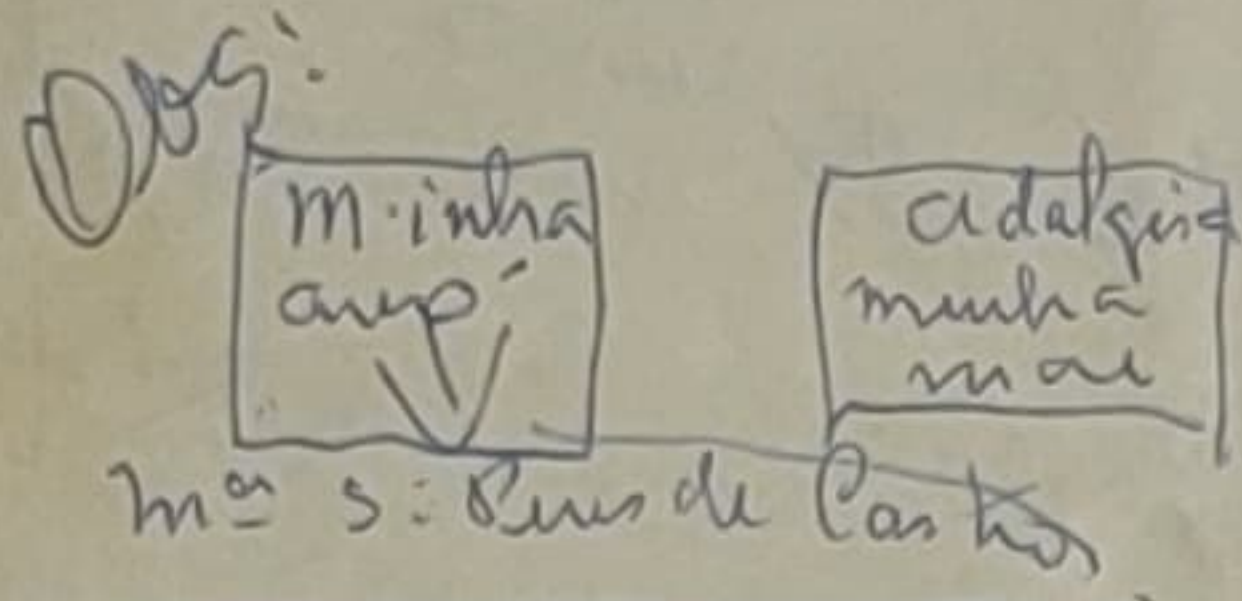 Obs:
Minha
avó
Adalgisa
minha
mãe
Mª S: Pires de Castro